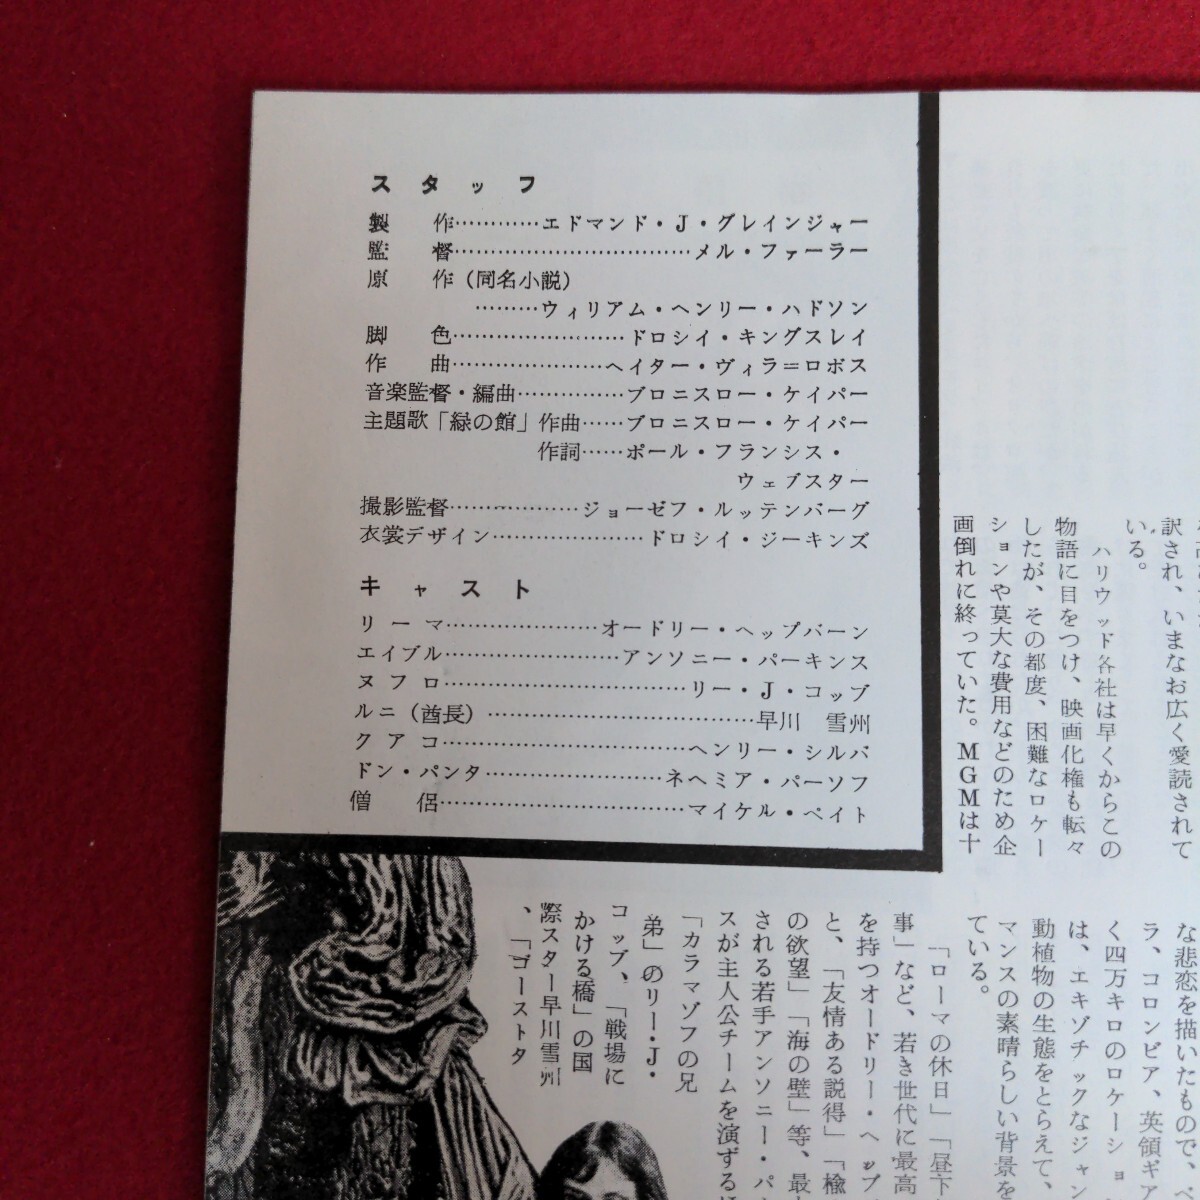 スタッフ
製　作…………エドマンド・J・グレインジャー
監　督……………………………メル・ファーラー
原　作（同名小説）
………ウィリアム・ヘンリー・ハドソン
脚　色……………………ドロシイ・キングスレイ
作　曲…………………ヘイター・ヴィラ＝ロボス
音楽監督・編曲……………ブロニスロー・ケイパー
主題歌「緑の館」作曲……ブロニスロー・ケイパー
作詞……ポール・フランシス・
ウェブスター
撮影監督………………ジョーゼフ・ルッテンバーグ
衣裳デザイン…………………ドロシイ・ジーキンズ
キャスト
リーマ…………………オードリー・ヘップバーン
エイブル……………………アンソニー・パーキンス
ヌフロ……………………………リー・J・コッブ
ルニ（酋長）………………………………早川　雪州
クアコ……………………………ヘンリー・シルバ
ドン・パンタ……………………ネヘミア・パーソフ
僧　侶……………………………マイケル・ペイト
訳され、いまなお広く愛読されて
いる。
ハリウッド各社は早くからこの
物語に目をつけ、映画化権も転々
したが、その都度、困難なロケー
ションや莫大な費用などのため企
画倒れに終っていた。MGMは十
な悲恋を描いたもので、
ラ、コロンビア、英領ギア
く四万キロのロケーショ
は、エキゾチックなジャン
動植物の生態をとらえて、
マンスの素晴らしい背景を
ている。
「ローマの休日」「昼下
事」など、若き世代に最高
を持つオードリー・ヘップ
と、「友情ある説得」「楡
の欲望」「海の壁」等、最
される若手アンソニー・パ
スが主人公チームを演ずる
「カラマゾフの兄
弟」のリー・J・
コッブ、「戦場に
かける橋」の国
際スター早川雪州
、「ゴーストタ